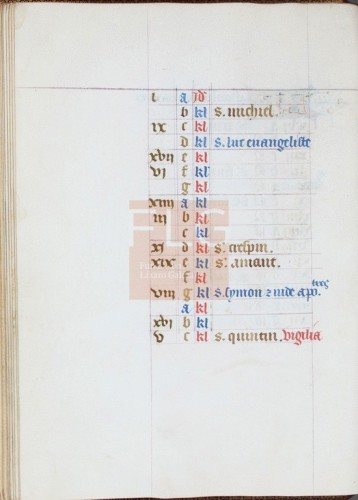 i a id
b kl s. michiel.
ix c kl
d kl s. luc euangeliste
xvii e kl
vi f kl
g kl
xiiii a kl
iii b kl
c kl
xi d kl s. crespin.
xix e kl s. amant.
f kl
viii g kl s. symon z iude apo.
a kl
xvi b kl
v c kl s. quintin. vigilia